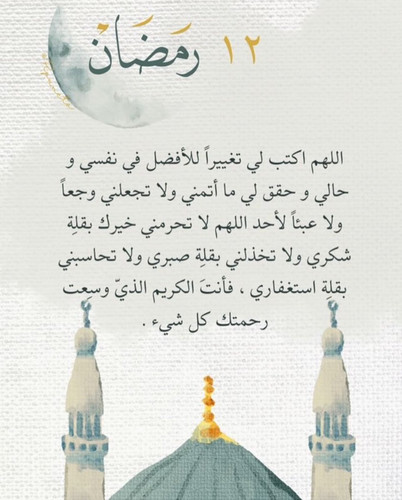 ١٢ رَمَضَان
اللهم اكتب لي تغييراً للأفضل في نفسي و
حالي و حقق لي ما أتمني ولا تجعلني وجعاً
ولا عبئاً لأحد اللهم لا تحرمني خيرك بقلة
شكري ولا تخذلني بقلةِ صبري ولا تحاسبني
بقلةِ استغفاري ، فأنتَ الكريم الذيّ وسِعت
رحمتك كل شيء .